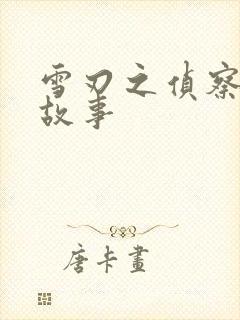 雪刃之偵察
故事
唐卡畫